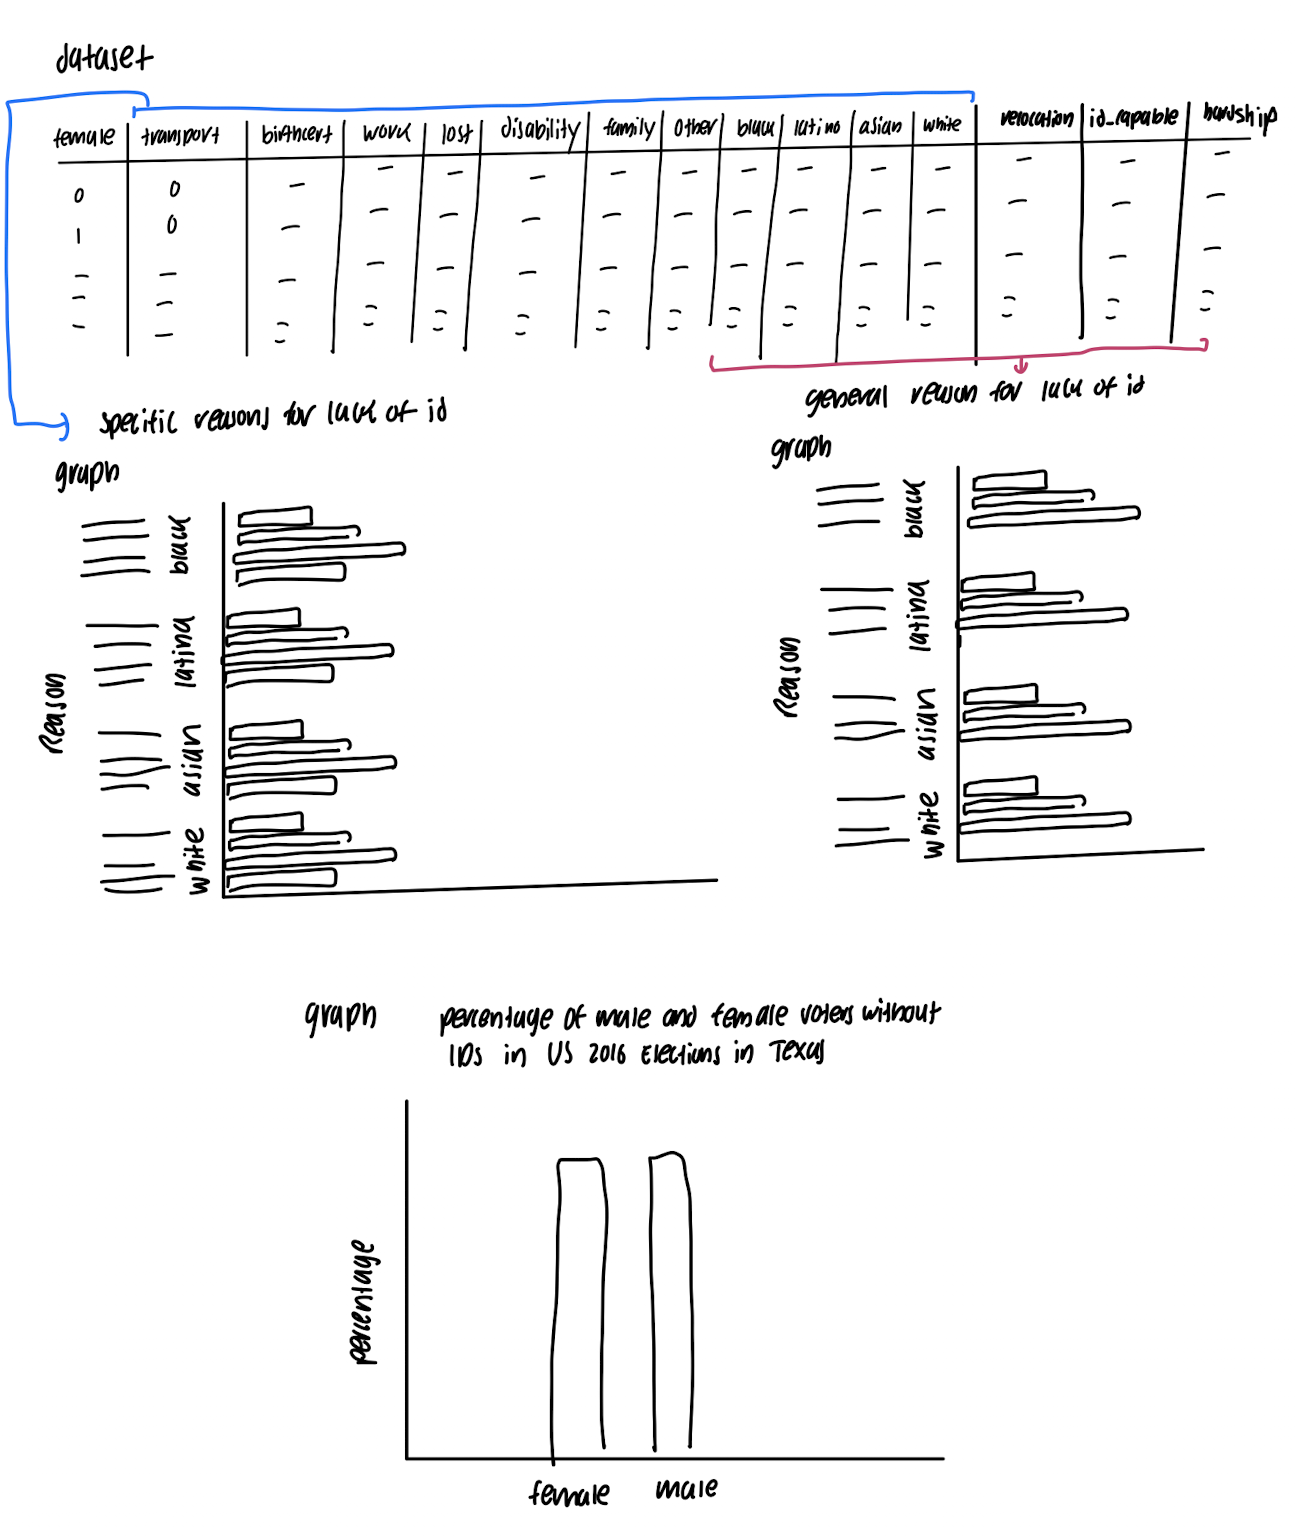 dataset
female transport birthcert work lost disability family other black latino asian white revocation id_capable hardships
0 0
1 0
general reason for lack of id
specific reasons for lack of id
graph
graph
Reason
black
latina
asian
white
Reason
black
latina
asian
white
graph percentage of male and female voters without
IDs in US 2016 Elections in Texas
percentage
female male